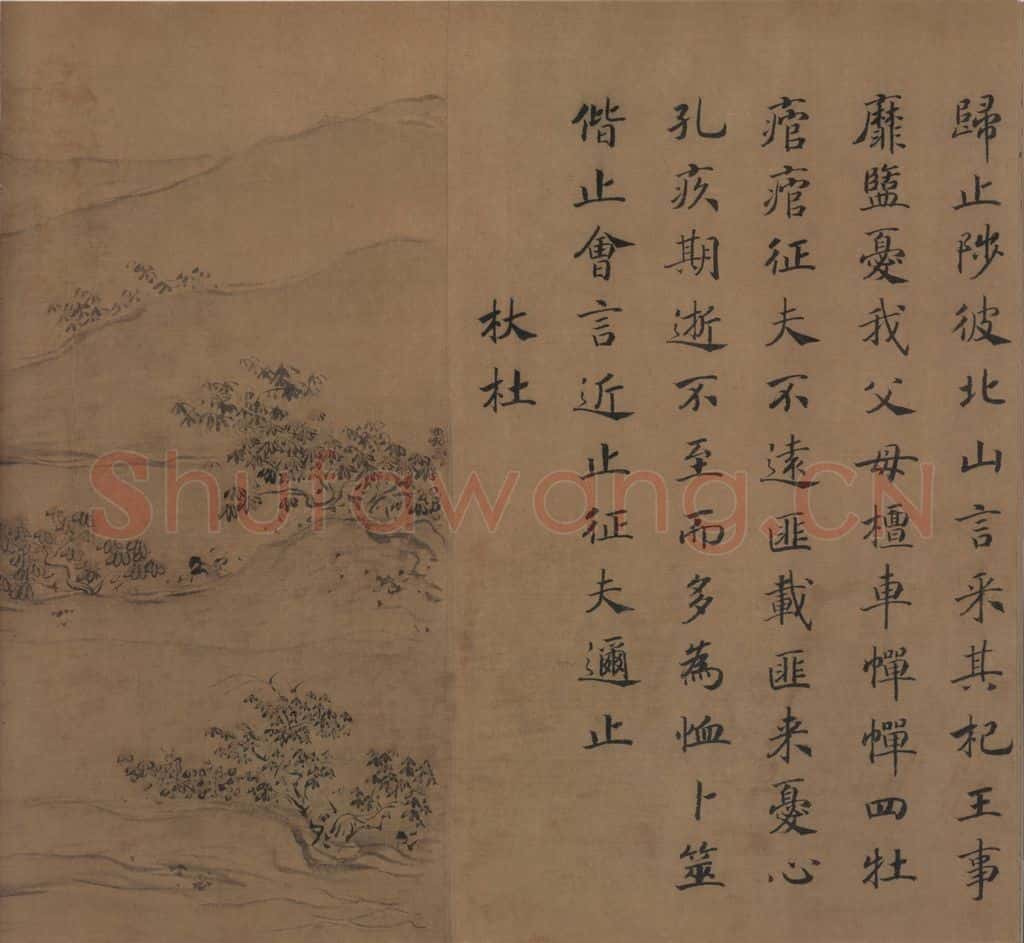 歸止陟彼北山言采其杞王事
靡盬憂我父母檀車幝幝四牡
痯痯征夫不遠匪載匪来憂心
孔疚期逝不至而多為恤卜筮
偕止會言近止征夫邇止
杕杜
Shufawang.CN